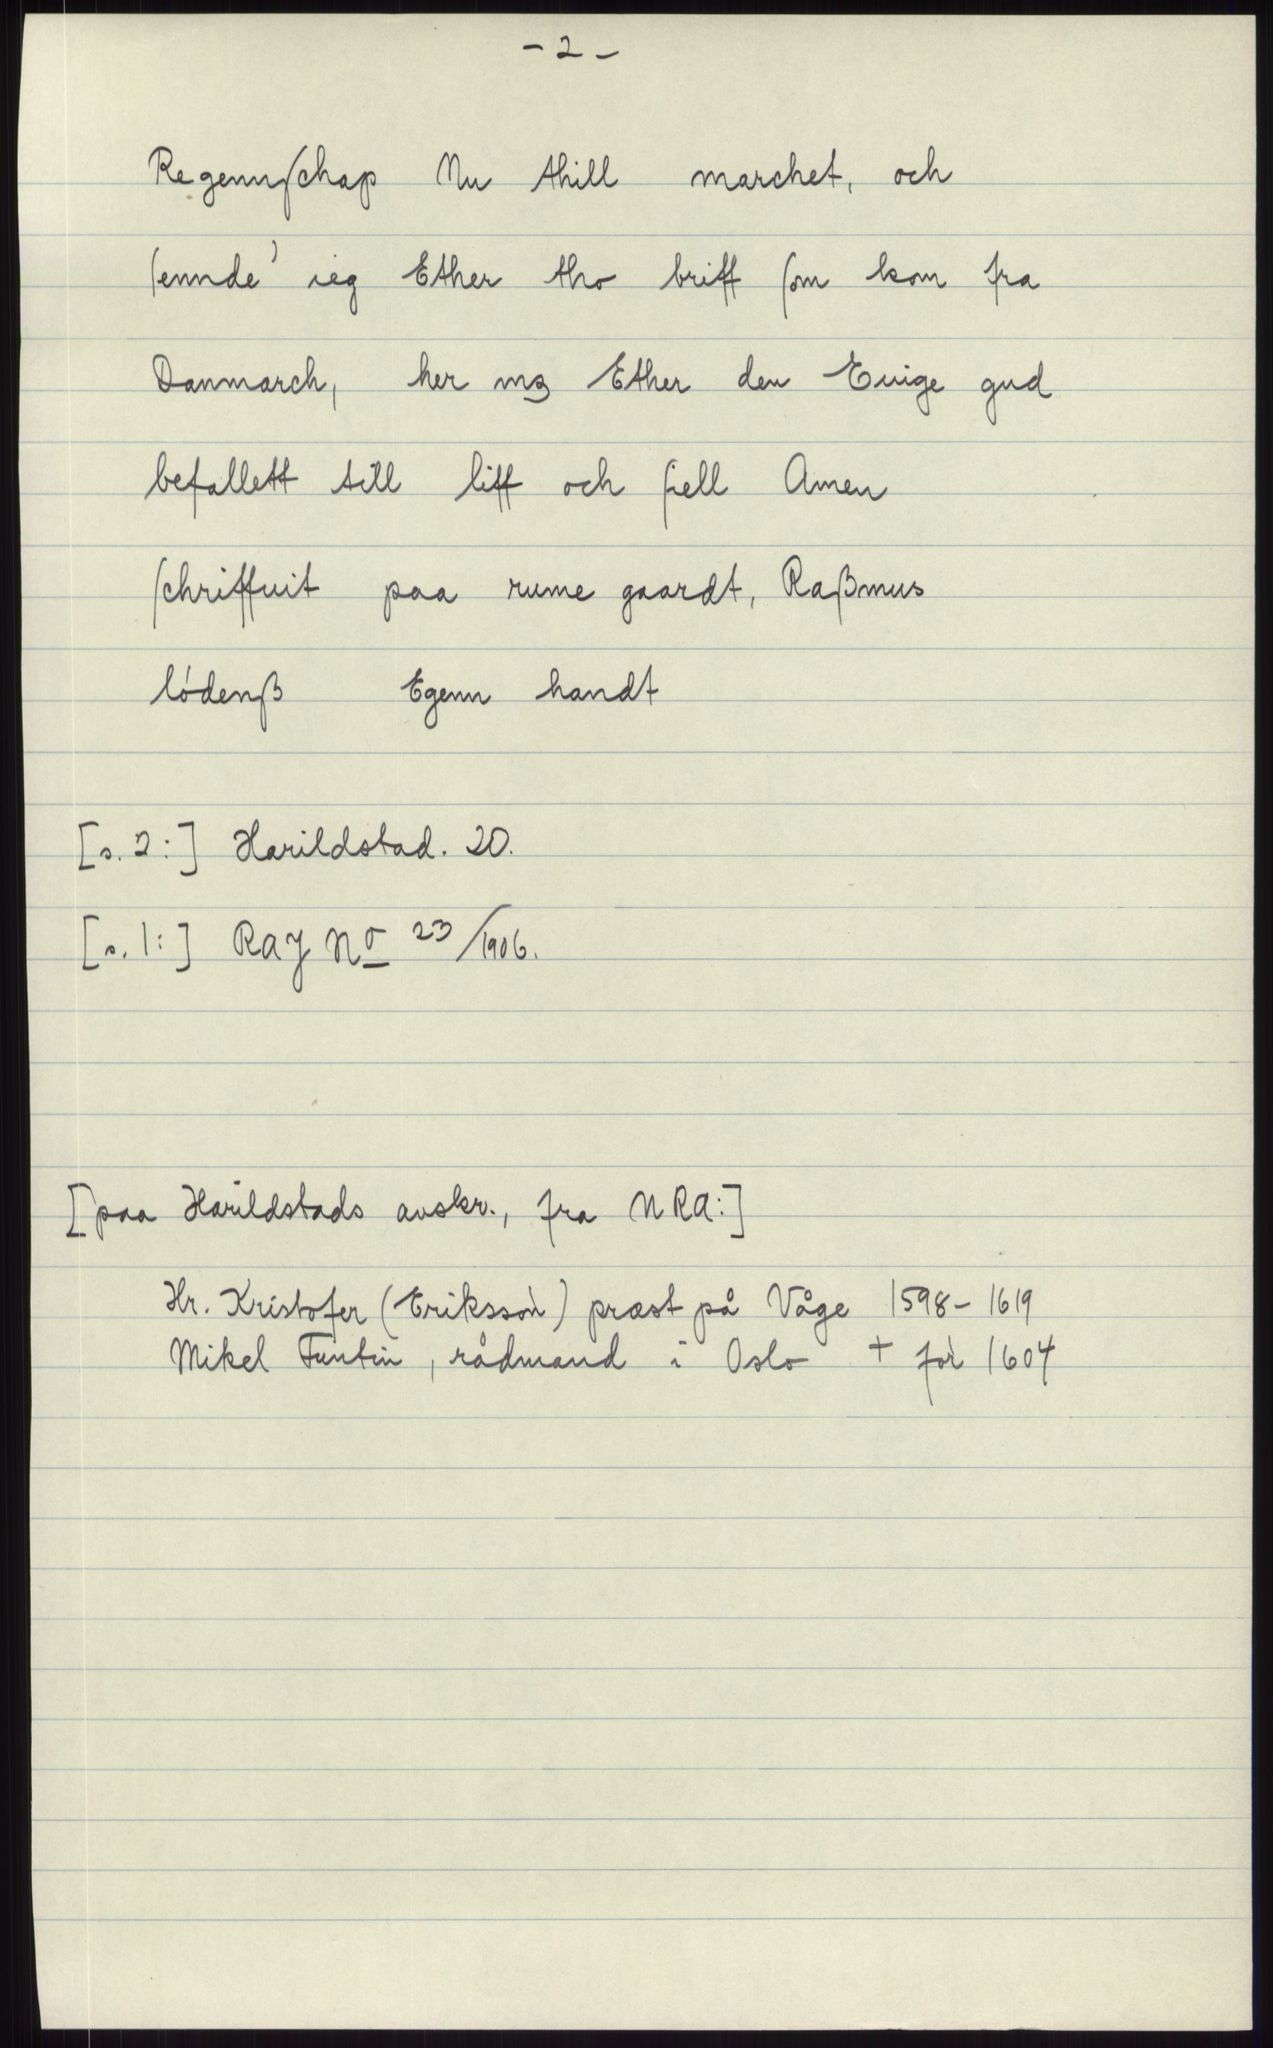 - 2 -
Regennſchap Nu thill marchet, och
ſennde' ieg Ether tho briff ſom kom fra
Danmarch, her mꝫ Ether den Euige gud
befallett till liff och ſiell Amen
ſchriffuit paa rume gaardt, Raßmus
lódenß Egenn handt
[s. 2:] Harildstad. 20.
[s. 1:] RAJ No 23/1906.
[paa Harildstads avskr., fra NRA:]
Hr. Kristofer (Eriksson) præst på Våge 1598-1619
Mikel Tuntin, rådmand i Oslo + før 1604